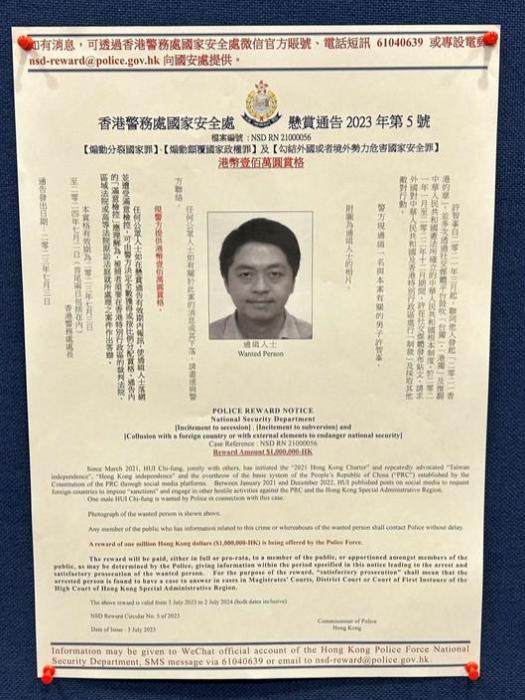 如有消息，可透過香港警務處國家安全處微信官方賬號、電話短訊 61040639 或專設電郵
nsd-reward@police.gov.hk 向國安處提供。
香港警務處國家安全處 懸賞通告 2023 年第 5 號
檔案編號：NSD RN 21000056
【煽動分裂國家罪】、【煽動顛覆國家政權罪】及【勾結外國或者境外勢力危害國家安全罪】
港幣壹佰萬圓賞格
許智峯自二〇二一年三月起，聯同他人發起「二〇二一香
港約章」，並多次透過社交媒體平台鼓吹「台獨」、「港獨」及推翻
中華人民共和國憲法所確立的中華人民共和國根本制度。於二〇二
一年一月至二〇二二年十二月期間，許在社交媒體發布帖文，請求
外國對中華人民共和國及香港特別行政區進行「制裁」及採取其他
敵對行動。
警方現通緝一名與本案有關的男子許智峯。
附圖為通緝人士的相片。
任何公眾人士如有關於此案的消息或其下落，請盡速與警
方聯絡。
現警方提供港幣壹佰萬圓賞格。
任何公眾人士如在懸賞通告有效期內報訊，使通緝人士落網
並遭受滿意檢控，可由警方決定全數獲得或按比例分配賞格。通告內
的「滿意檢控」應理解為，被捕者須要在香港特別行政區的裁判法院、
區域法院或高等法院原訟法庭就所處理之案件作出答辯。
本賞格有效期為二〇二三年七月三日
至二〇二四年七月二日（首尾兩日包括在內）
香港警務處處長
通告發出日期：二〇二三年七月三日
通緝人士
Wanted Person
POLICE REWARD NOTICE
National Security Department
[Incitement to secession] , [Incitement to subversion] and
[Collusion with a foreign country or with external elements to endanger national security]
Case Reference : NSD RN 21000056
Reward Amount $1,000,000-HK
Since March 2021, HUI Chi-fung, jointly with others, has initiated the "2021 Hong Kong Charter" and repeatedly advocated "Taiwan
independence", "Hong Kong independence" and the overthrow of the basic system of the People's Republic of China ("PRC") established by the
Constitution of the PRC through social media platforms. Between January 2021 and December 2022, HUI published posts on social media to request
foreign countries to impose "sanctions" and engage in other hostile activities against the PRC and the Hong Kong Special Administrative Region.
One male HUI Chi-fung is wanted by Police in connection with this case.
Photograph of the wanted person is shown above.
Any member of the public who has information related to this crime or whereabouts of the wanted person shall contact Police without delay.
A reward of one million Hong Kong dollars ($1,000,000-HK) is being offered by the Police Force.
The reward will be paid, either in full or pro-rata, to a member of the public, or apportioned amongst members of the
public, as may be determined by the Police, giving information within the period specified in this notice leading to the arrest and
satisfactory prosecution of the wanted person. For the purpose of the reward, "satisfactory prosecution" shall mean that the
arrested person is found to have a case to answer in cases in Magistrates' Courts, District Court or Court of First Instance of the
High Court of Hong Kong Special Administrative Region.
The above reward is valid from 3 July 2023 to 2 July 2024 (both dates inclusive)
NSD Reward Circular No. 5 of 2023
Commissioner of Police
Date of Issue : 3 July 2023
Hong Kong
Information may be given to WeChat official account of the Hong Kong Police Force National
Security Department, SMS message via 61040639 or email to nsd-reward@police.gov.hk.